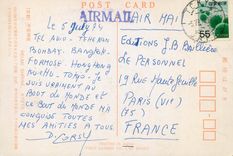 AIRMAIL
PAR AIR MAIL
55
Le 5 July 74
TEL AVIV - TEHERAN
BOMBAY. BANGKOK.
FORMOSE HONG KONG
KYUSHU - TOKYO. JE
SUIS VRAIMENT AU
BOUT DU MONDE ET
CE BOUT DU MONDE MA
CONQUISE TOUTES
MES AMITIES A TOUS
EDITIONS J.B Baillière
LE PERSONNEL
19 RUE Hautefeuille
PARIS (VI)
(75)
FRANCE